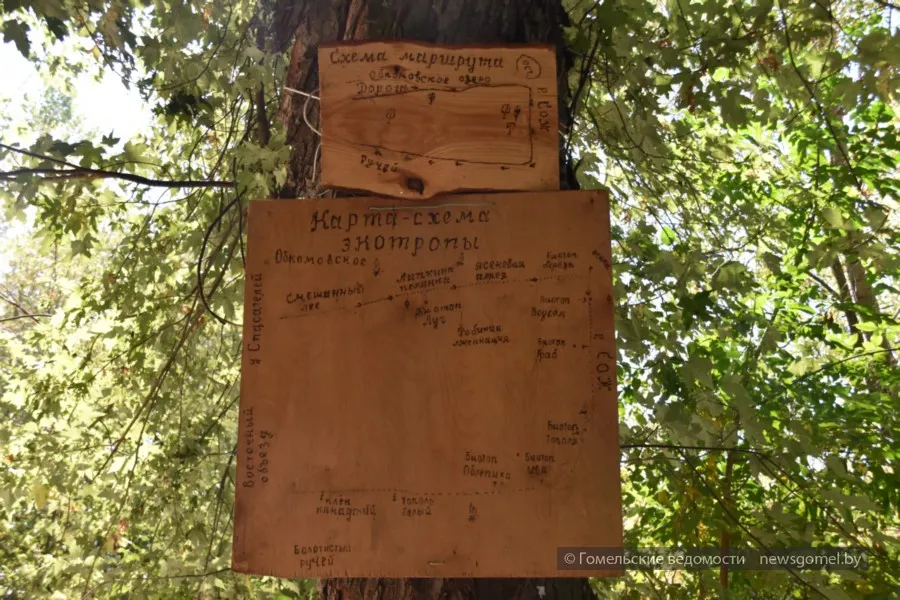 Схема маршрута
Обкомовское озеро
Дорога
р. Сож
ручей
Карта-схема
экотропы
Обкомовское
Смешанный
лес
Липкина
полянка
Ясеневая
аллея
Биотоп
Биотоп
Луг
Робиния
лжеакация
Биотоп
Биотоп
Граб
р. СОЖ
у Спасателей
Восточный
объезд
Биотоп
Тополь
Биотоп
Облепиха
Биотоп
Ива
клен
канадский
тополь
белый
Болотистый
ручей
© Гомельские ведомости newsgomel.by